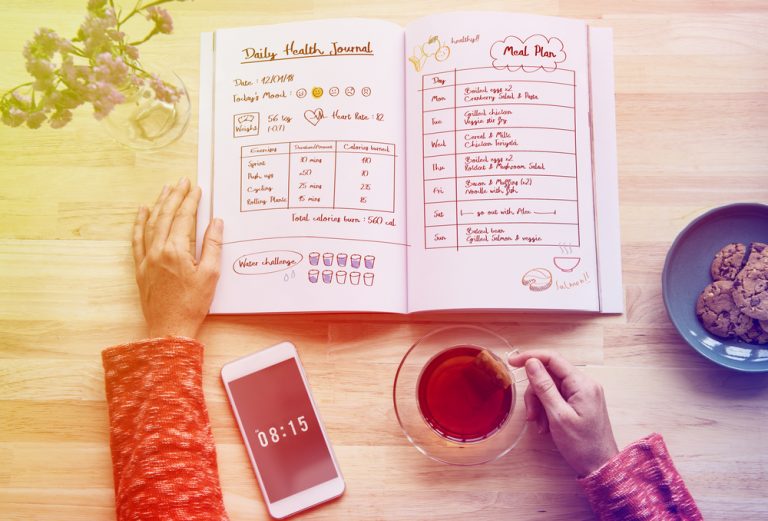 Daily Health Journal
Date : 12/04/18
Today's Mood :
Weight
56 kg
(-0.1)
Heart Rate : 82
Exercises Duration/Amount Calories burned
Sprint 30 mins
Push ups x50 10
Cycling 25 mins 235
Rolling Planic 15 mins 85
Total calories burn : 560 cal
Water challenge
healthy!!
Meal Plan
Day
Mon Boiled eggs x2
Cranberry Salad & Pasta
Tue Grilled chicken
Veggie stir fry
Wed Cereal & Milk
Chicken Teriyaki
Thu Boiled eggs x2
& Mushroom Salad
Fri Bacon & Muffins (x2)
Noodle with fish
Sat go out with Alex
Sun bean
Grilled Salmon & veggie
Salmon!!
08:15